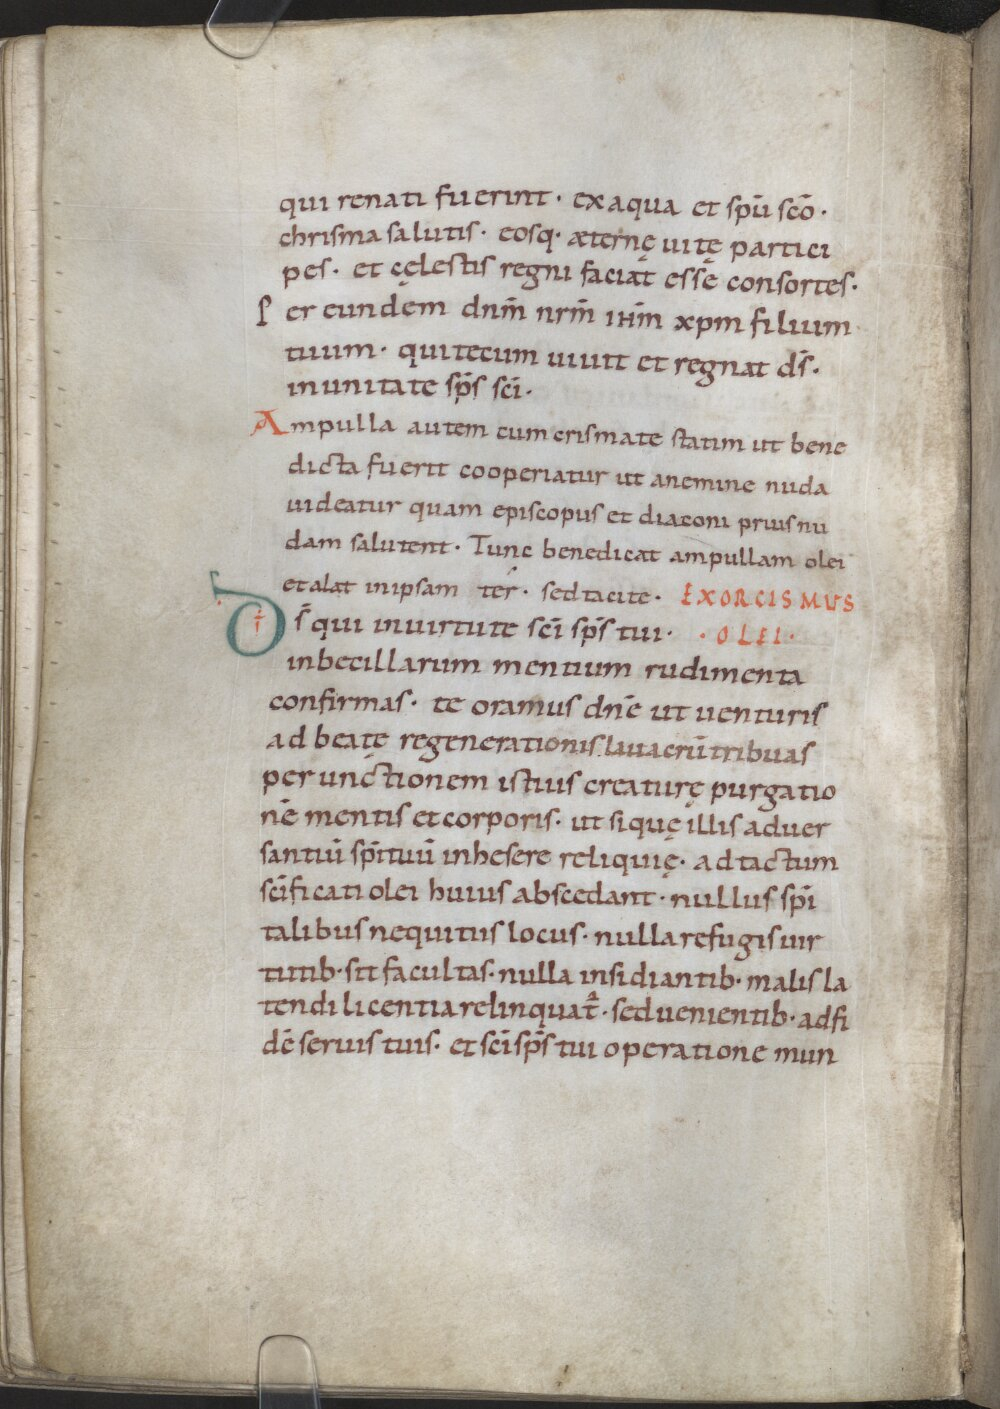 qui renati fuerint· ex aqua et spū scō·
chrisma salutis· eosq· æternę uitę partici
pes· et cęlestis regni faciat esse consortes·
Per eundem dnm̄ nrm̄ ihm̄ xpm filium
tuum· qui tecum uiuit et regnat ds̄·
in unitate sps̄ scī·
Ampulla autem cum crismate statim ut bene
dicta fuerit cooperiatur ut a nemine nuda
uideatur quam episcopus et diaconi prius nu
dam salutent· Tunc benedicat ampullam olei
et alat in ipsam ter· sed tacite· EXORCISMUS
Ds̄ qui in uirtute scī sps̄ tui· ·OLEI·
inbecillarum mentium rudimenta
confirmas· te oramus dnē ut uenturis
ad beatę regenerationis lauacrū tribuas
per unctionem istius creaturę purgatio
nē mentis et corporis· ut si quę illis aduer
santiū spīrituū inhesere reliquię· ad tactum
scīficati olei huius abscedant· nullus spī
talibus nequitiis locus· nulla refugis uir
tutib· sit facultas· nulla insidiantib· malis la
tendi licentia relinquat᷑· sed uenientib· ad fi
dē seruis tuis· et scī sps̄ tui operatione mun